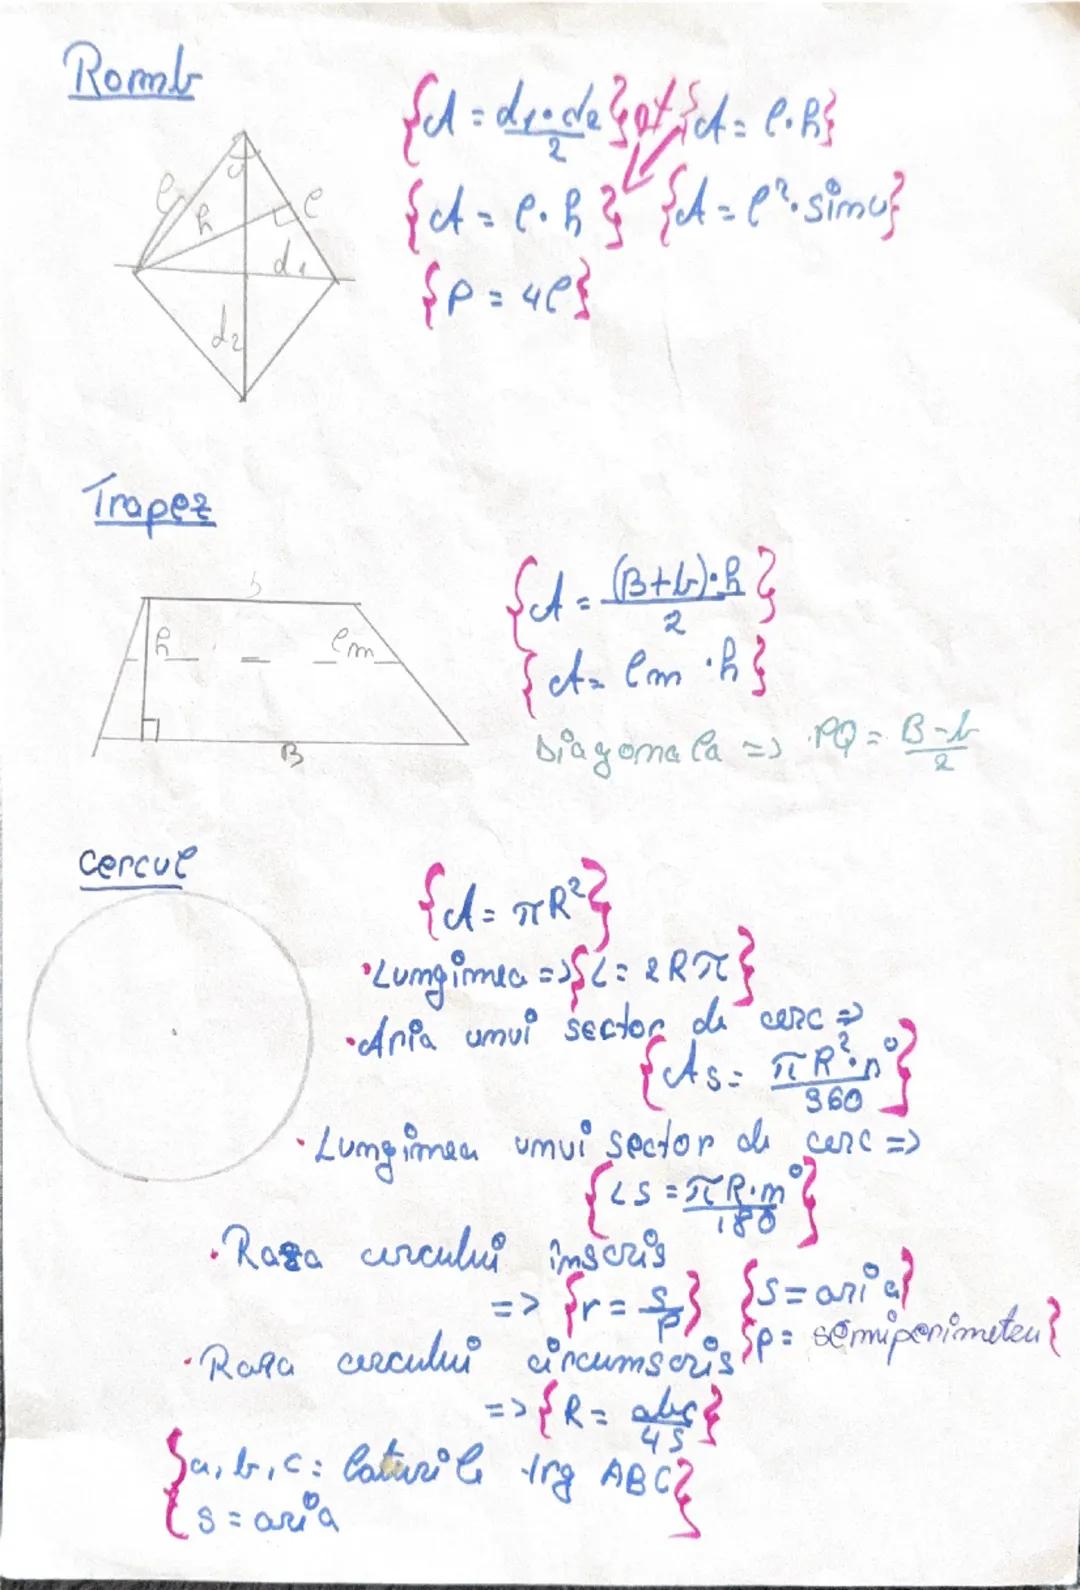 Romb
{A = d₁·d₂/2} {A = l·h}
{A = l·h} {A = l²·sinu}
{P = 4l}
u
l h l
d₁
d₂
Trapez
b
h lm
B
{A = (B+b)·h/2}
{A = lm·h}
Diagonala => PQ = B-b/2
Cercul
{A = πR²}
•Lungimea => {L = 2Rπ}
•Aria unui sector de cerc =>
{As = πR²·n°/360}
•Lungimea unui sector de cerc =>
{LS = πR·n°/180}
•Raza cercului înscris
=> {r = S/P} {S = aria}
{p = semiperimetru}
•Raza cercului circumscris
=> {R = abc/4S}
{a, b, c: laturile trg ABC}
S = aria